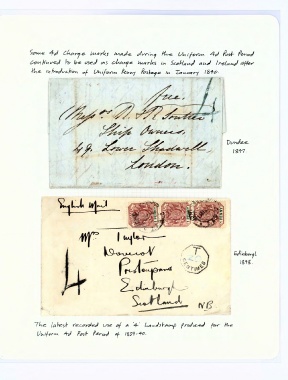 Some 4d Charge marks made during the Uniform 4d Post Period
continued to be used as charge marks in Scotland and Ireland after
the introduction of Uniform Penny Postage in January 1840.
free.
Messrs
Ship Owners,
49. Lower Shadwell
London.
Dundee
English Mail
Mrs Taylor
Prestonpans
Edinburgh
Scotland
NB
4
T
CENTIMES
Edinburgh
1898.
The latest recorded use of a 4 handstamp produced for the
Uniform 4d Post Period of 1839-40.